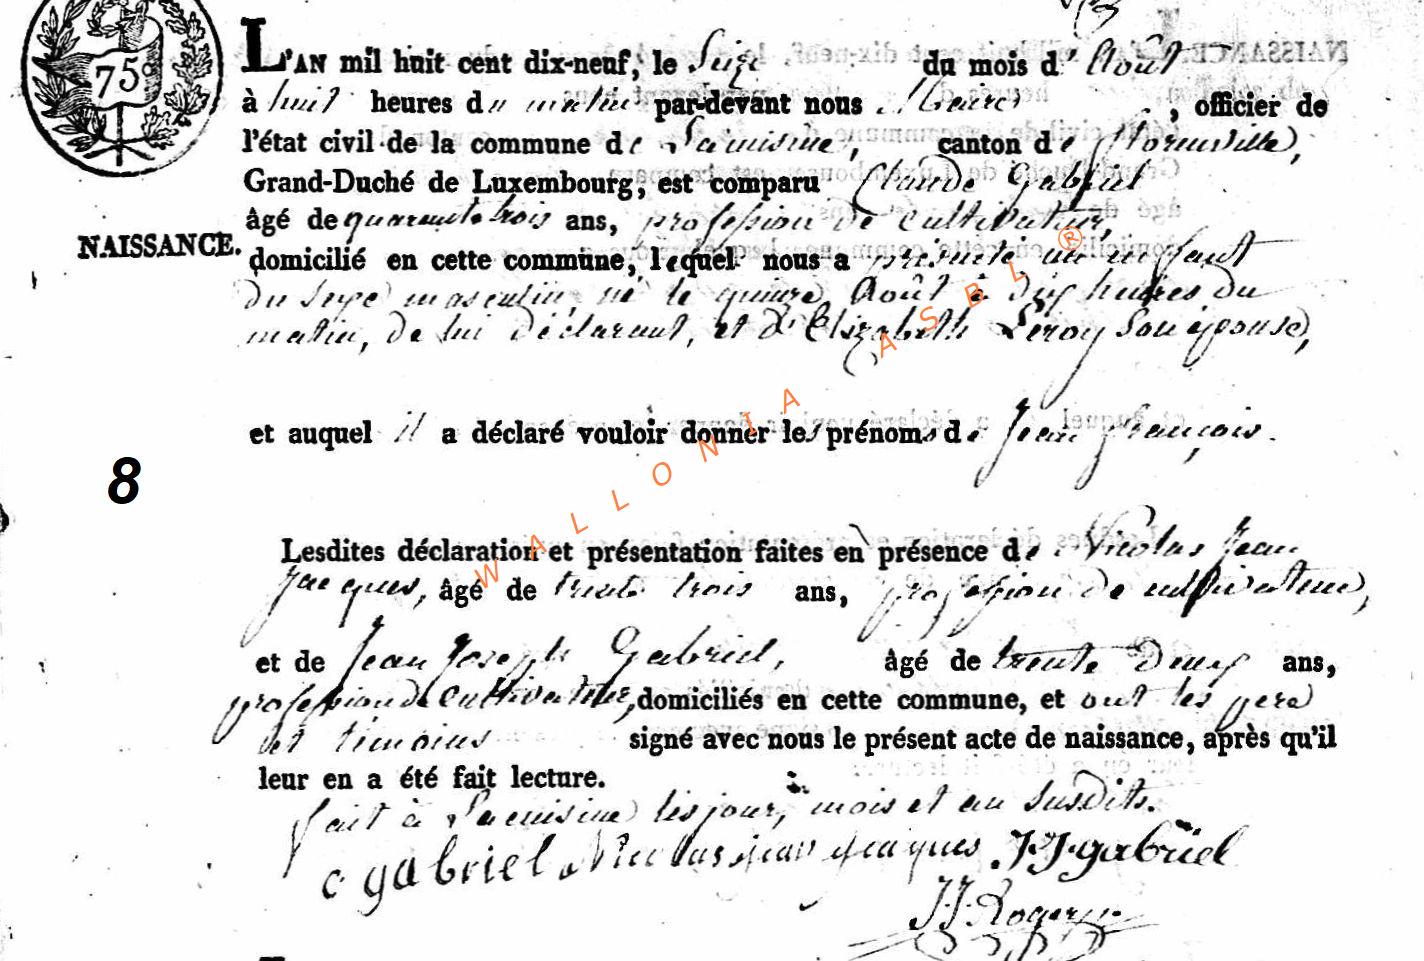 75c
L'AN mil huit cent dix-neuf, le Seize du mois d' Août
à huit heures du matin par-devant nous Maire, officier de
l'état civil de la commune de Lamisine, canton de
Grand-Duché de Luxembourg, est comparu Claude Gabriel
âgé de quarante trois ans, profession de cultivateur,
NAISSANCE.
domicilié en cette commune, lequel nous a présenté un enfant
du sexe masculin, né le quinze Août à dix heures du
matin, de lui déclarant, et d'Elizabeth Leroy Son épouse,
et auquel il a déclaré vouloir donner les prénoms de Jean françois.
8
Lesdites déclaration et présentation faites en présence de Nicolas Jean
Jacques, âgé de trente trois ans, profession de cultivateur,
et de Jean Joseph Gabriel, âgé de trente deux ans,
profession de cultivateur, domiciliés en cette commune, et ont les pere
et témoins signé avec nous le présent acte de naissance, après qu'il
leur en a été fait lecture.
fait à Lamisine les jour, mois et an susdits.
c gabriel Nicolas jean jacques J.J. gabriel
J.J. Rogery
WALLONIA ASBL ®